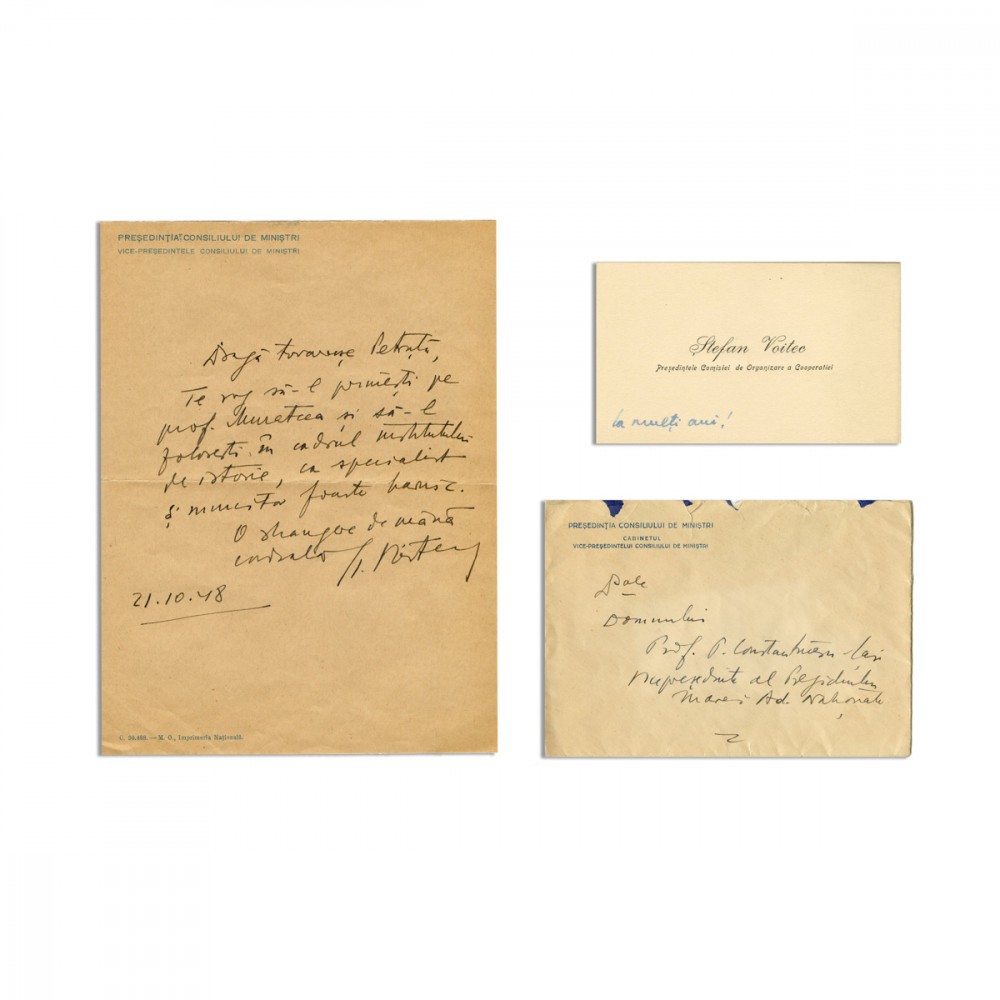 PREȘEDINȚIA CONSILIULUI DE MINIȘTRI
VICE-PREȘEDINTELE CONSILIULUI DE MINIȘTRI
Dragă tovarașe Petruță,
Te rog să-l primești pe
prof. și să-l
folosești în cadrul institutului
de istorie, ca specialist
și muncitor foarte harnic.
O strangere de mână
cordială Șt. Voitec
21.10.48
C. — M. O., Imprimeria Națională.
Ștefan Voitec
Președintele Comisiei de Organizare a Cooperației
La mulți ani!
PREȘEDINȚIA CONSILIULUI DE MINIȘTRI
CABINETUL
VICE-PREȘEDINTELUI CONSILIULUI DE MINIȘTRI
Domnului
Prof. P. Constantinescu-Iași
Vicepreședinte al Prezidiului
Marei Ad. Naționale